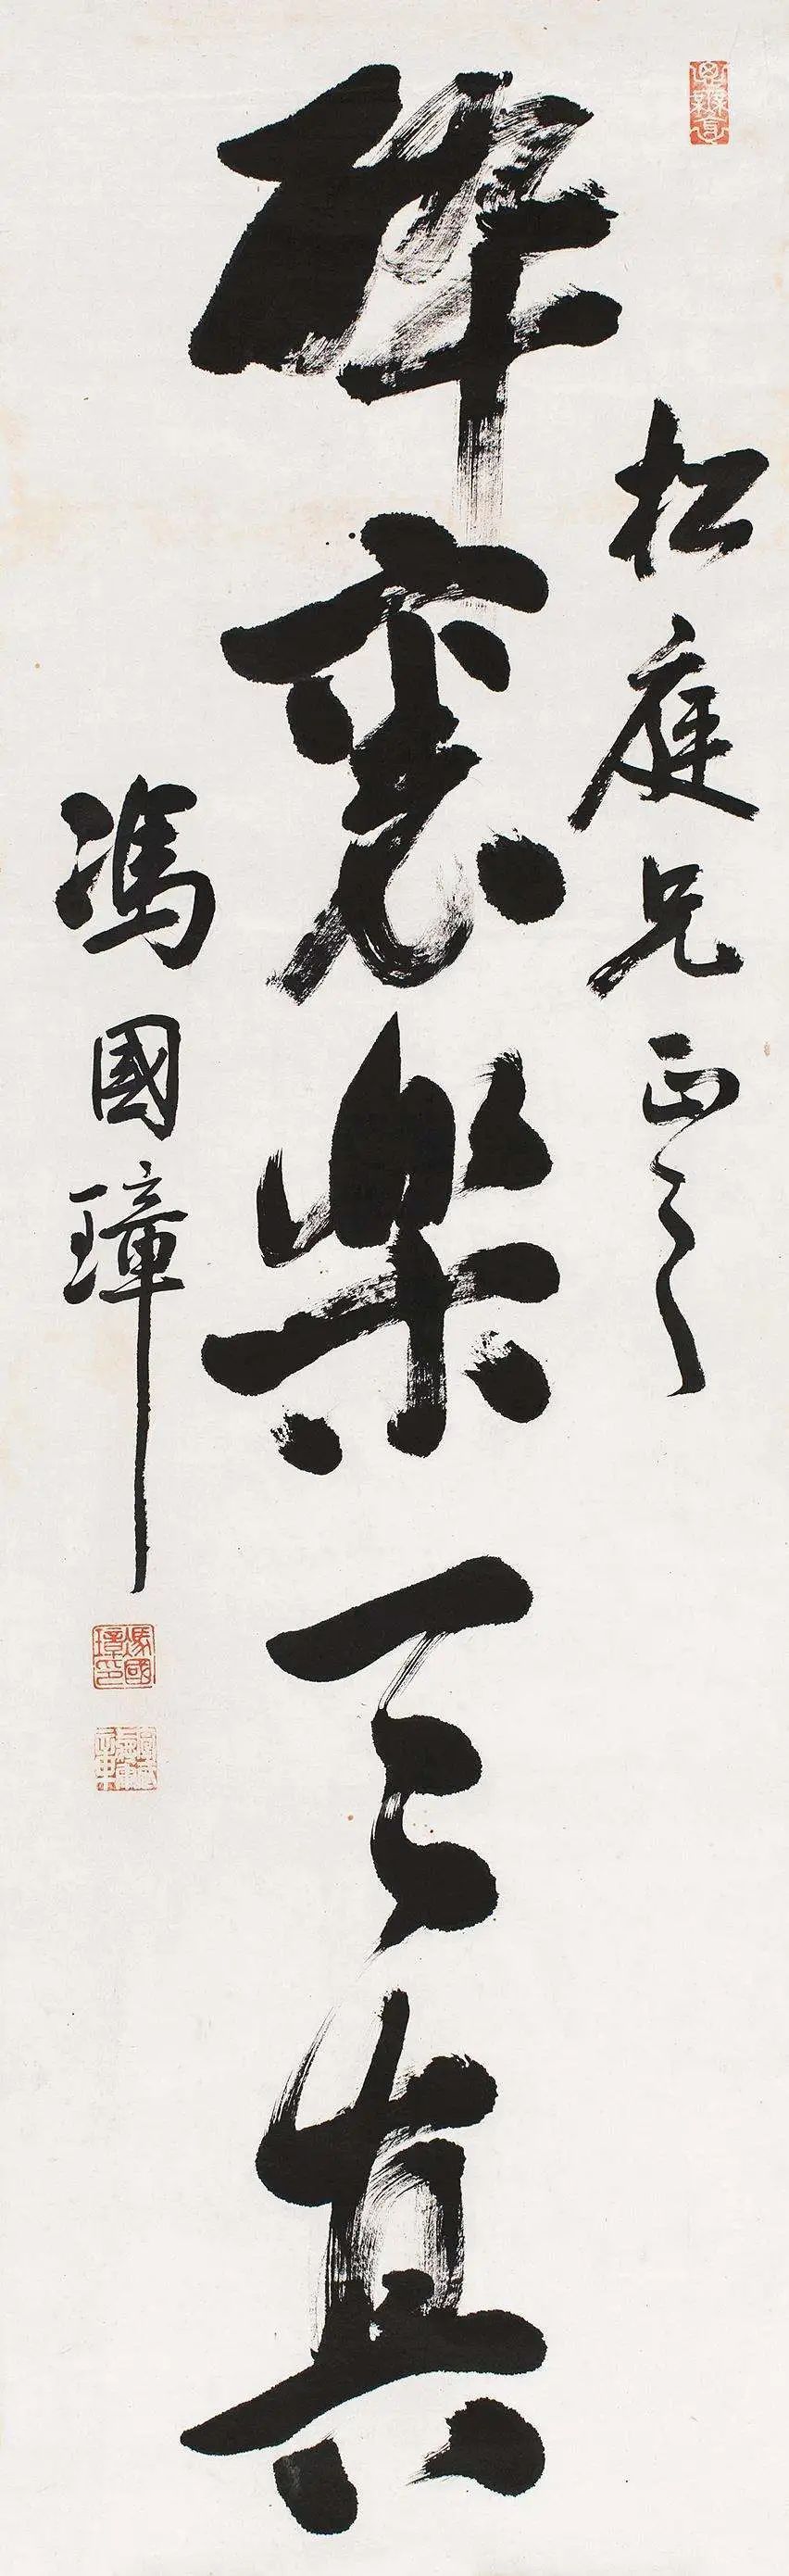 松庭兄正之
醉裏樂天真
馮國璋
馮國璋印